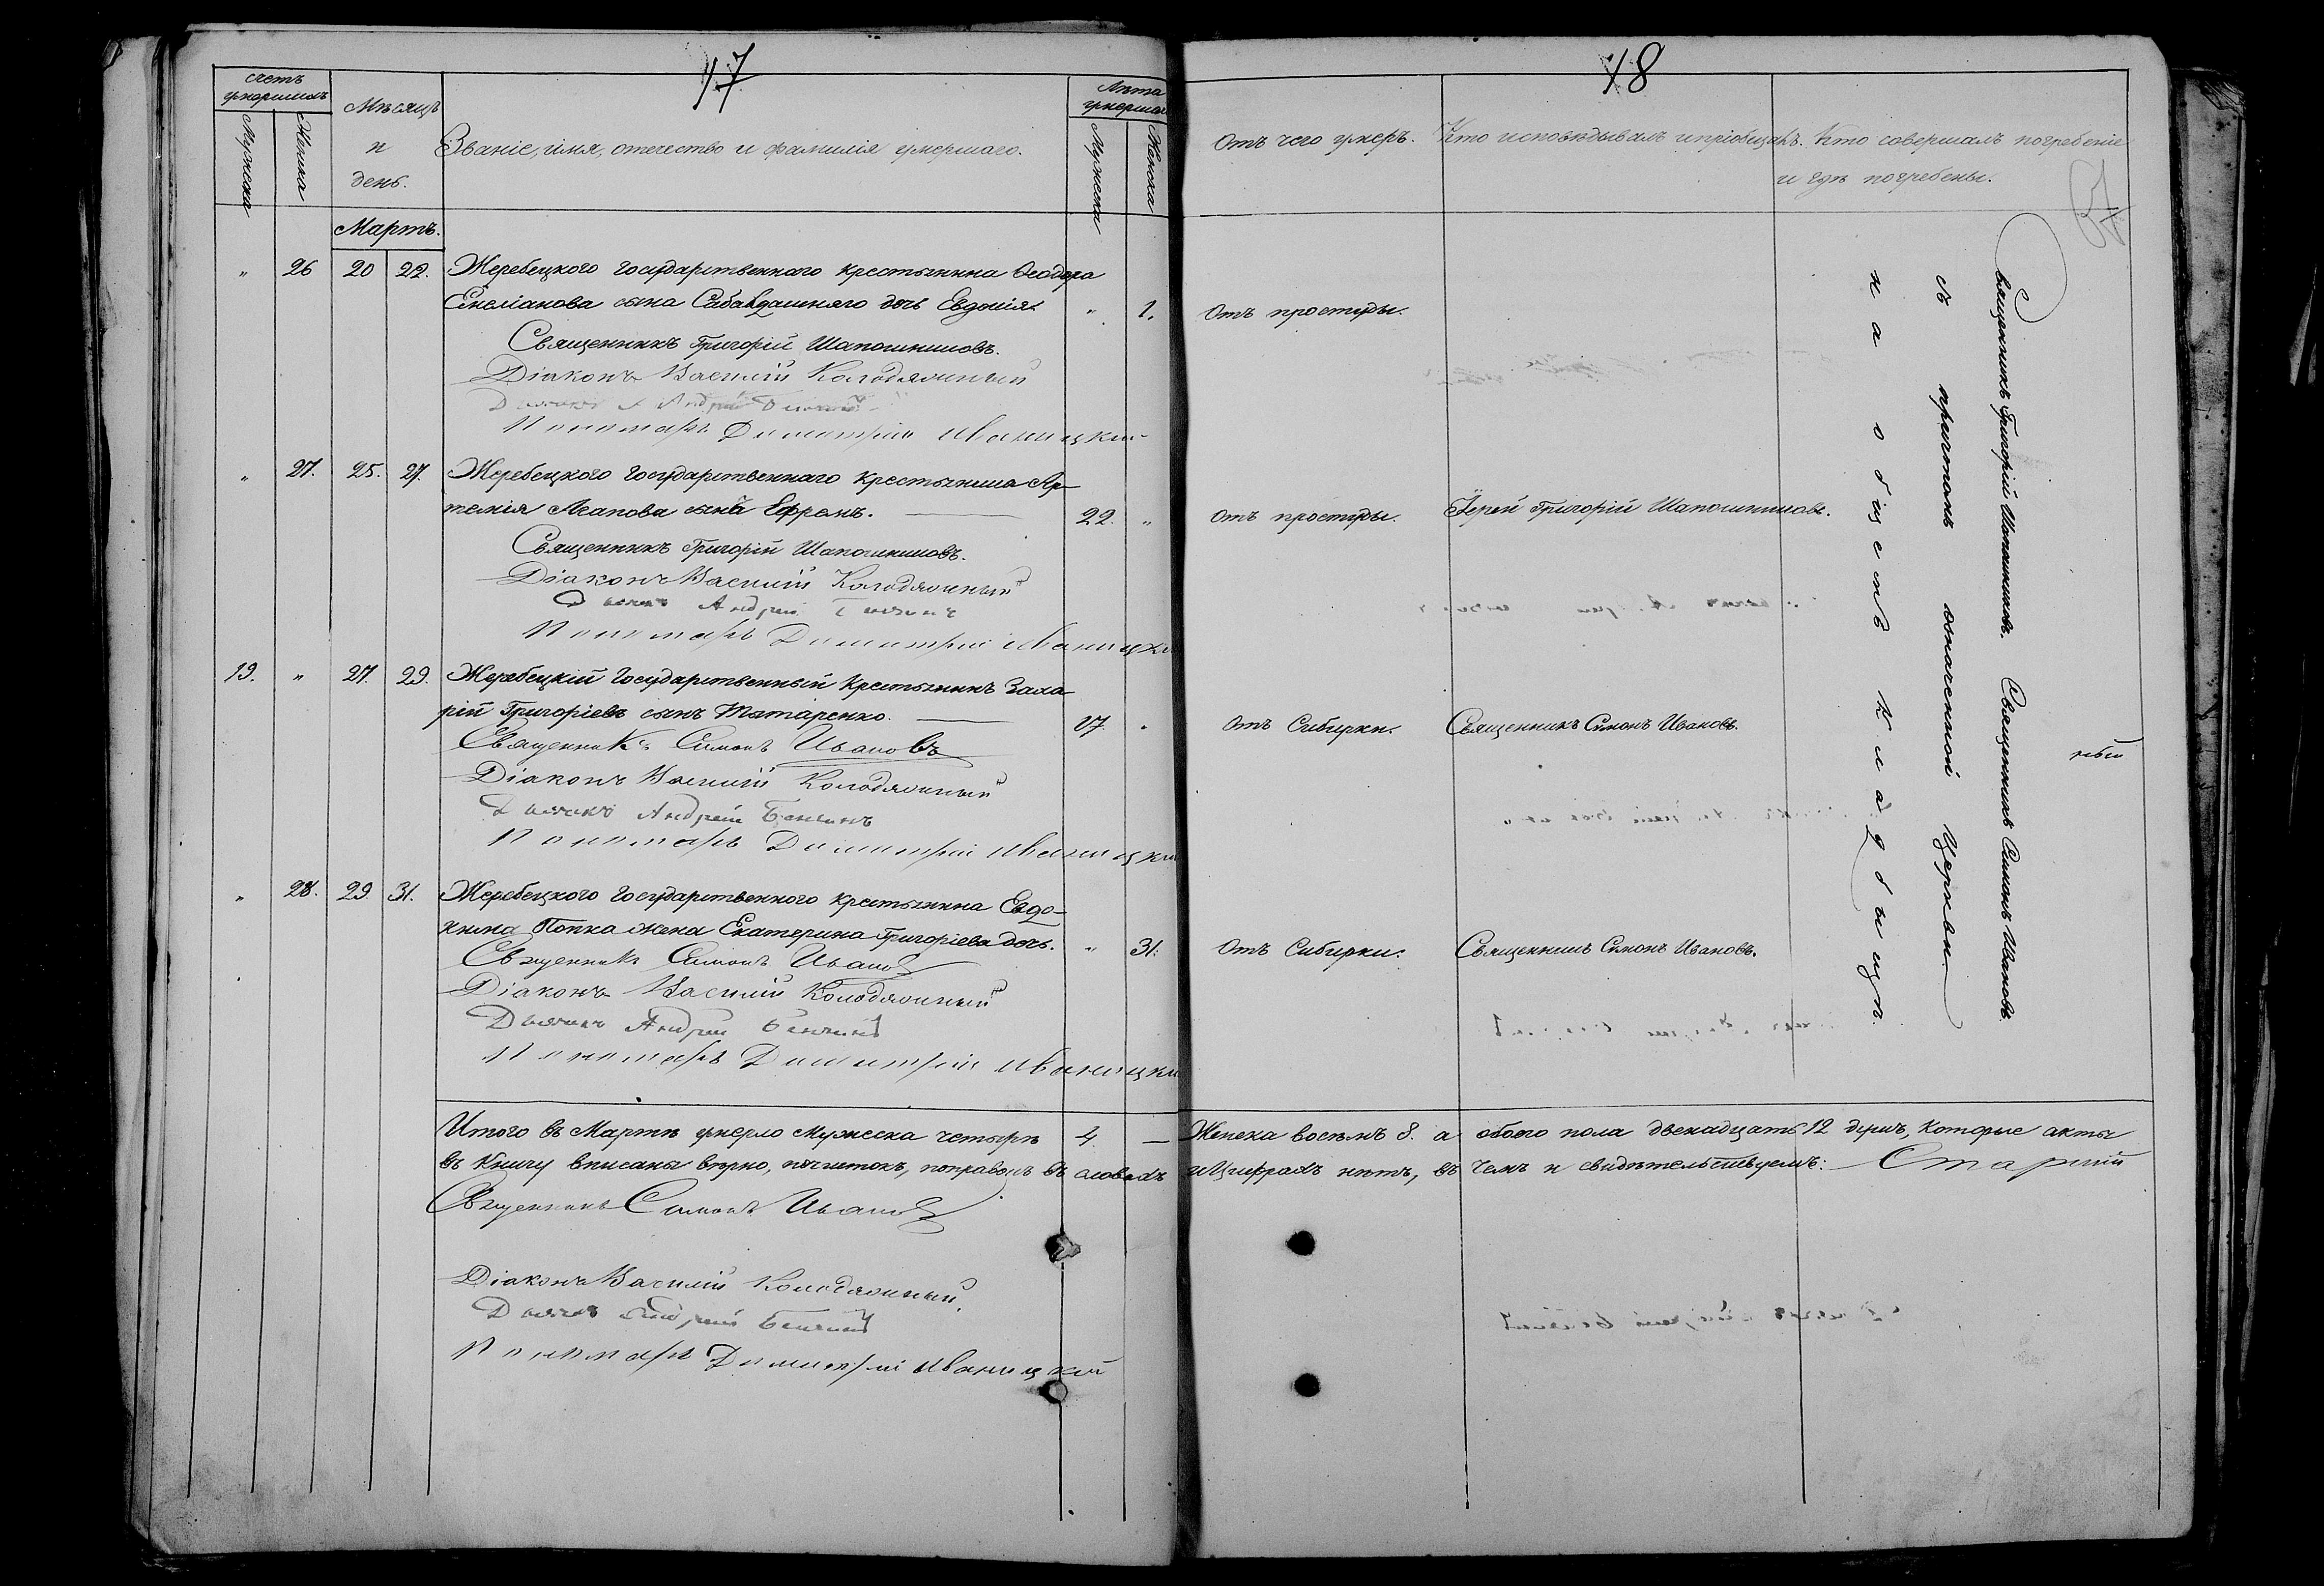 17
счетъ
умершихъ
Мужеска
Женска
Мѣсяцъ
и
день.
Званіе, имя, отечество и фамилія умершаго.
Лѣта
умершаго
Мужеска
Женска
Мартъ.
" 26 20 22. Жеребецкого Государственнаго крестьянина Ѳеодора
Емеліанова сына дочь Евдокія. " 1.
Священникъ Григорій Шапошниковъ.
Діаконъ Василій Колодяжный
Дьячекъ Андрей
Пономарь Димитрій Иваницкій
" 27. 25. 27. Жеребецкого Государственнаго Крестьянина Ар-
темія Агапова сына Ефремъ. 22. "
Священникъ Григорій Шапошниковъ.
Діаконъ Василій Колодяжный
Дьячекъ Андрей
Пономарь Димитрій Иваницкій
19. " 27. 29. Жеребецкій Государственный Крестьянинъ Заха-
рій Григоріевъ сынъ Татаренко. 27. "
Священникъ Симонъ Ивановъ
Діаконъ Василій Колодяжный
Дьячекъ Андрей
Пономарь Димитрій Иваницкій
" 28. 29 31. Жеребецкого Государственного крестьянина Евдо-
кима Попка жена Екатерина Григоріева дочь. " 31.
Священникъ Симонъ Ивановъ
Діаконъ Василій Колодяжный
Дьячекъ Андрей
Пономарь Димитрій Иваницкій
Итого въ Мартѣ умерло Мужеска четыре 4. —
въ Книгу вписаны вѣрно, почистокъ, поправокъ въ словахъ
Священникъ Симонъ Ивановъ
Діаконъ Василій Колодяжный.
Дьячекъ Андрей
Пономарь Димитрій Иваницкій
18
Отъ чего умеръ.
Кто исповѣдывалъ и пріобщалъ.
Кто совершалъ погребеніе
и гдѣ погребены.
Отъ простуды.
Отъ простуды. Іерей Григорій Шапошниковъ.
Отъ Сибирки. Священникъ Симонъ Ивановъ.
Отъ Сибирки. Священникъ Симонъ Ивановъ.
Священникъ Григорій Шапошниковъ. Священникъ Симонъ Ивановъ
съ причтомъ означенной Церкви
на общемъ Кладбищѣ.
ный
Женска восемь 8. а обоего пола двенадцать 12 душъ, Которые акты
и Цифрахъ нѣтъ, въ чемъ и свидѣтельствуемъ: Старшій